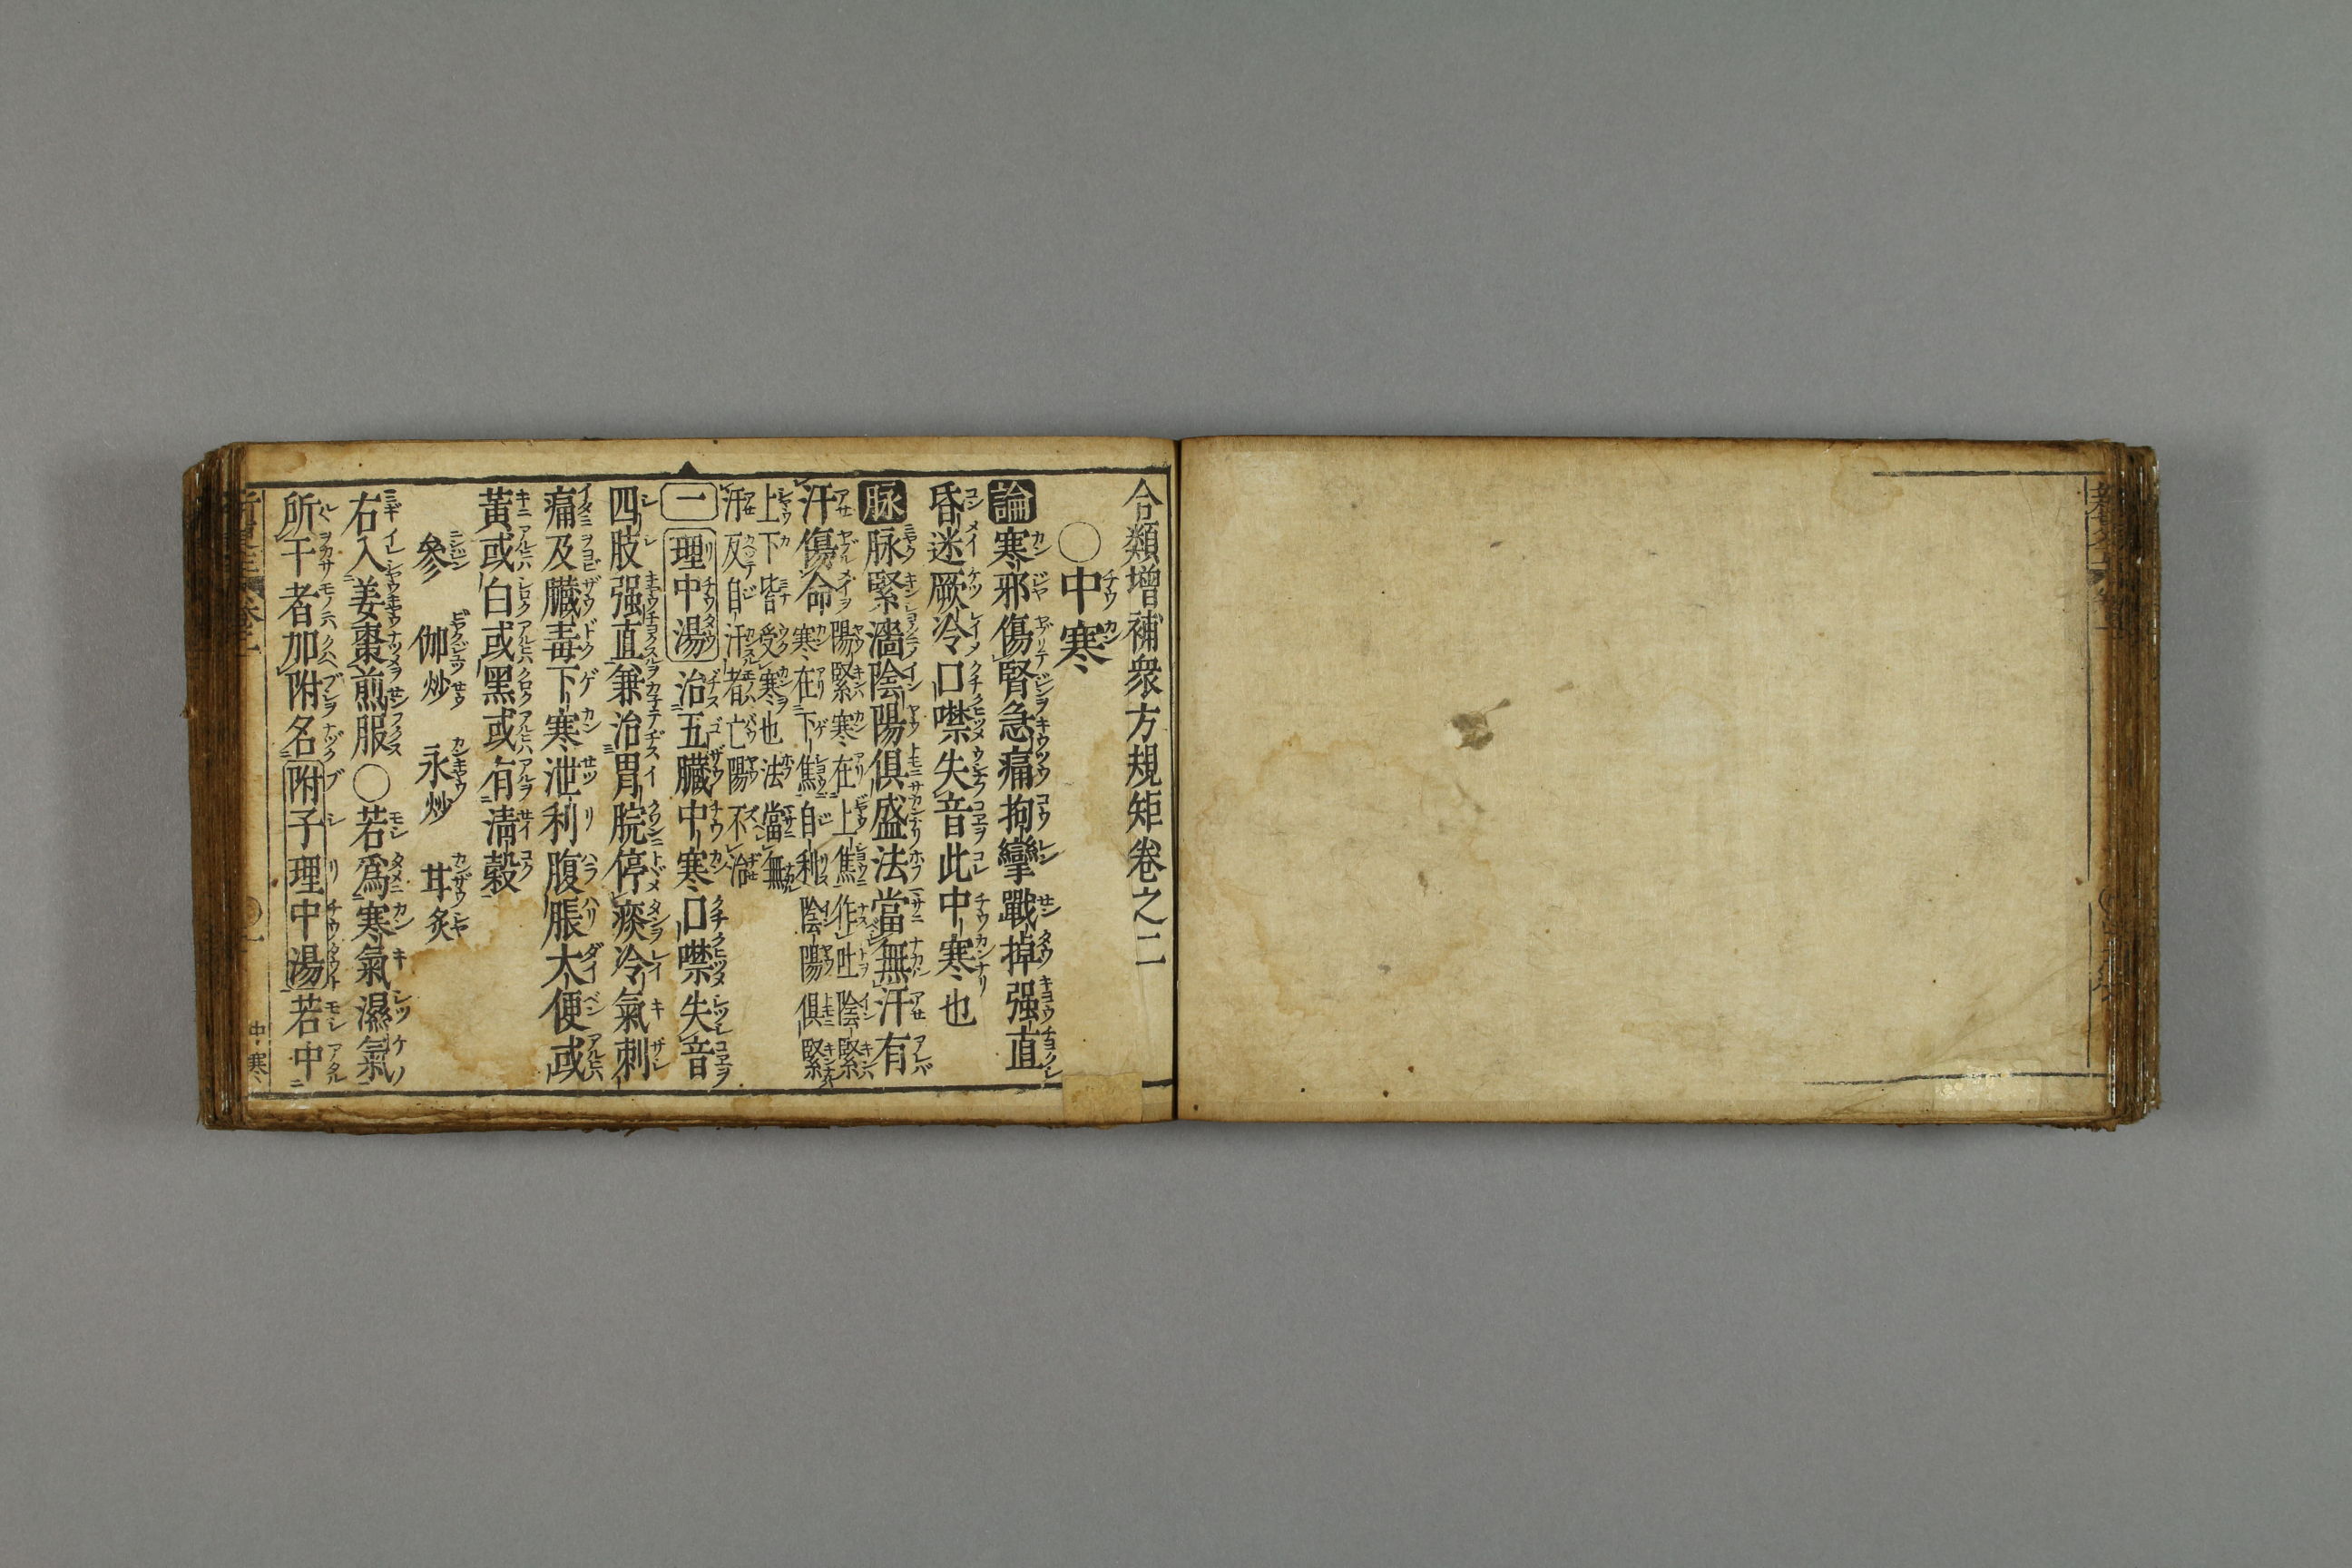 合類增補衆方規矩卷之二
○中寒
論寒邪傷腎急痛拘攣戰掉强直
昏迷厥冷口噤失音此中寒也
脉脉緊濇陰陽俱盛法當無汗有
汗傷命
陽緊寒在上焦作吐陰緊
寒在下焦自利陰陽俱緊
上下皆受寒也法當無
汗反自汗者亡陽不治
一理中湯治五臟中寒口噤失音
四肢强直兼治胃脘停痰冷氣刺
痛及臟毒下寒泄利腹脹大便或
黃或白或黑或有淸穀
參 伽炒 永炒 甘炙
右入姜棗煎服○若爲寒氣濕氣
所干者加附名附子理中湯若中
中寒